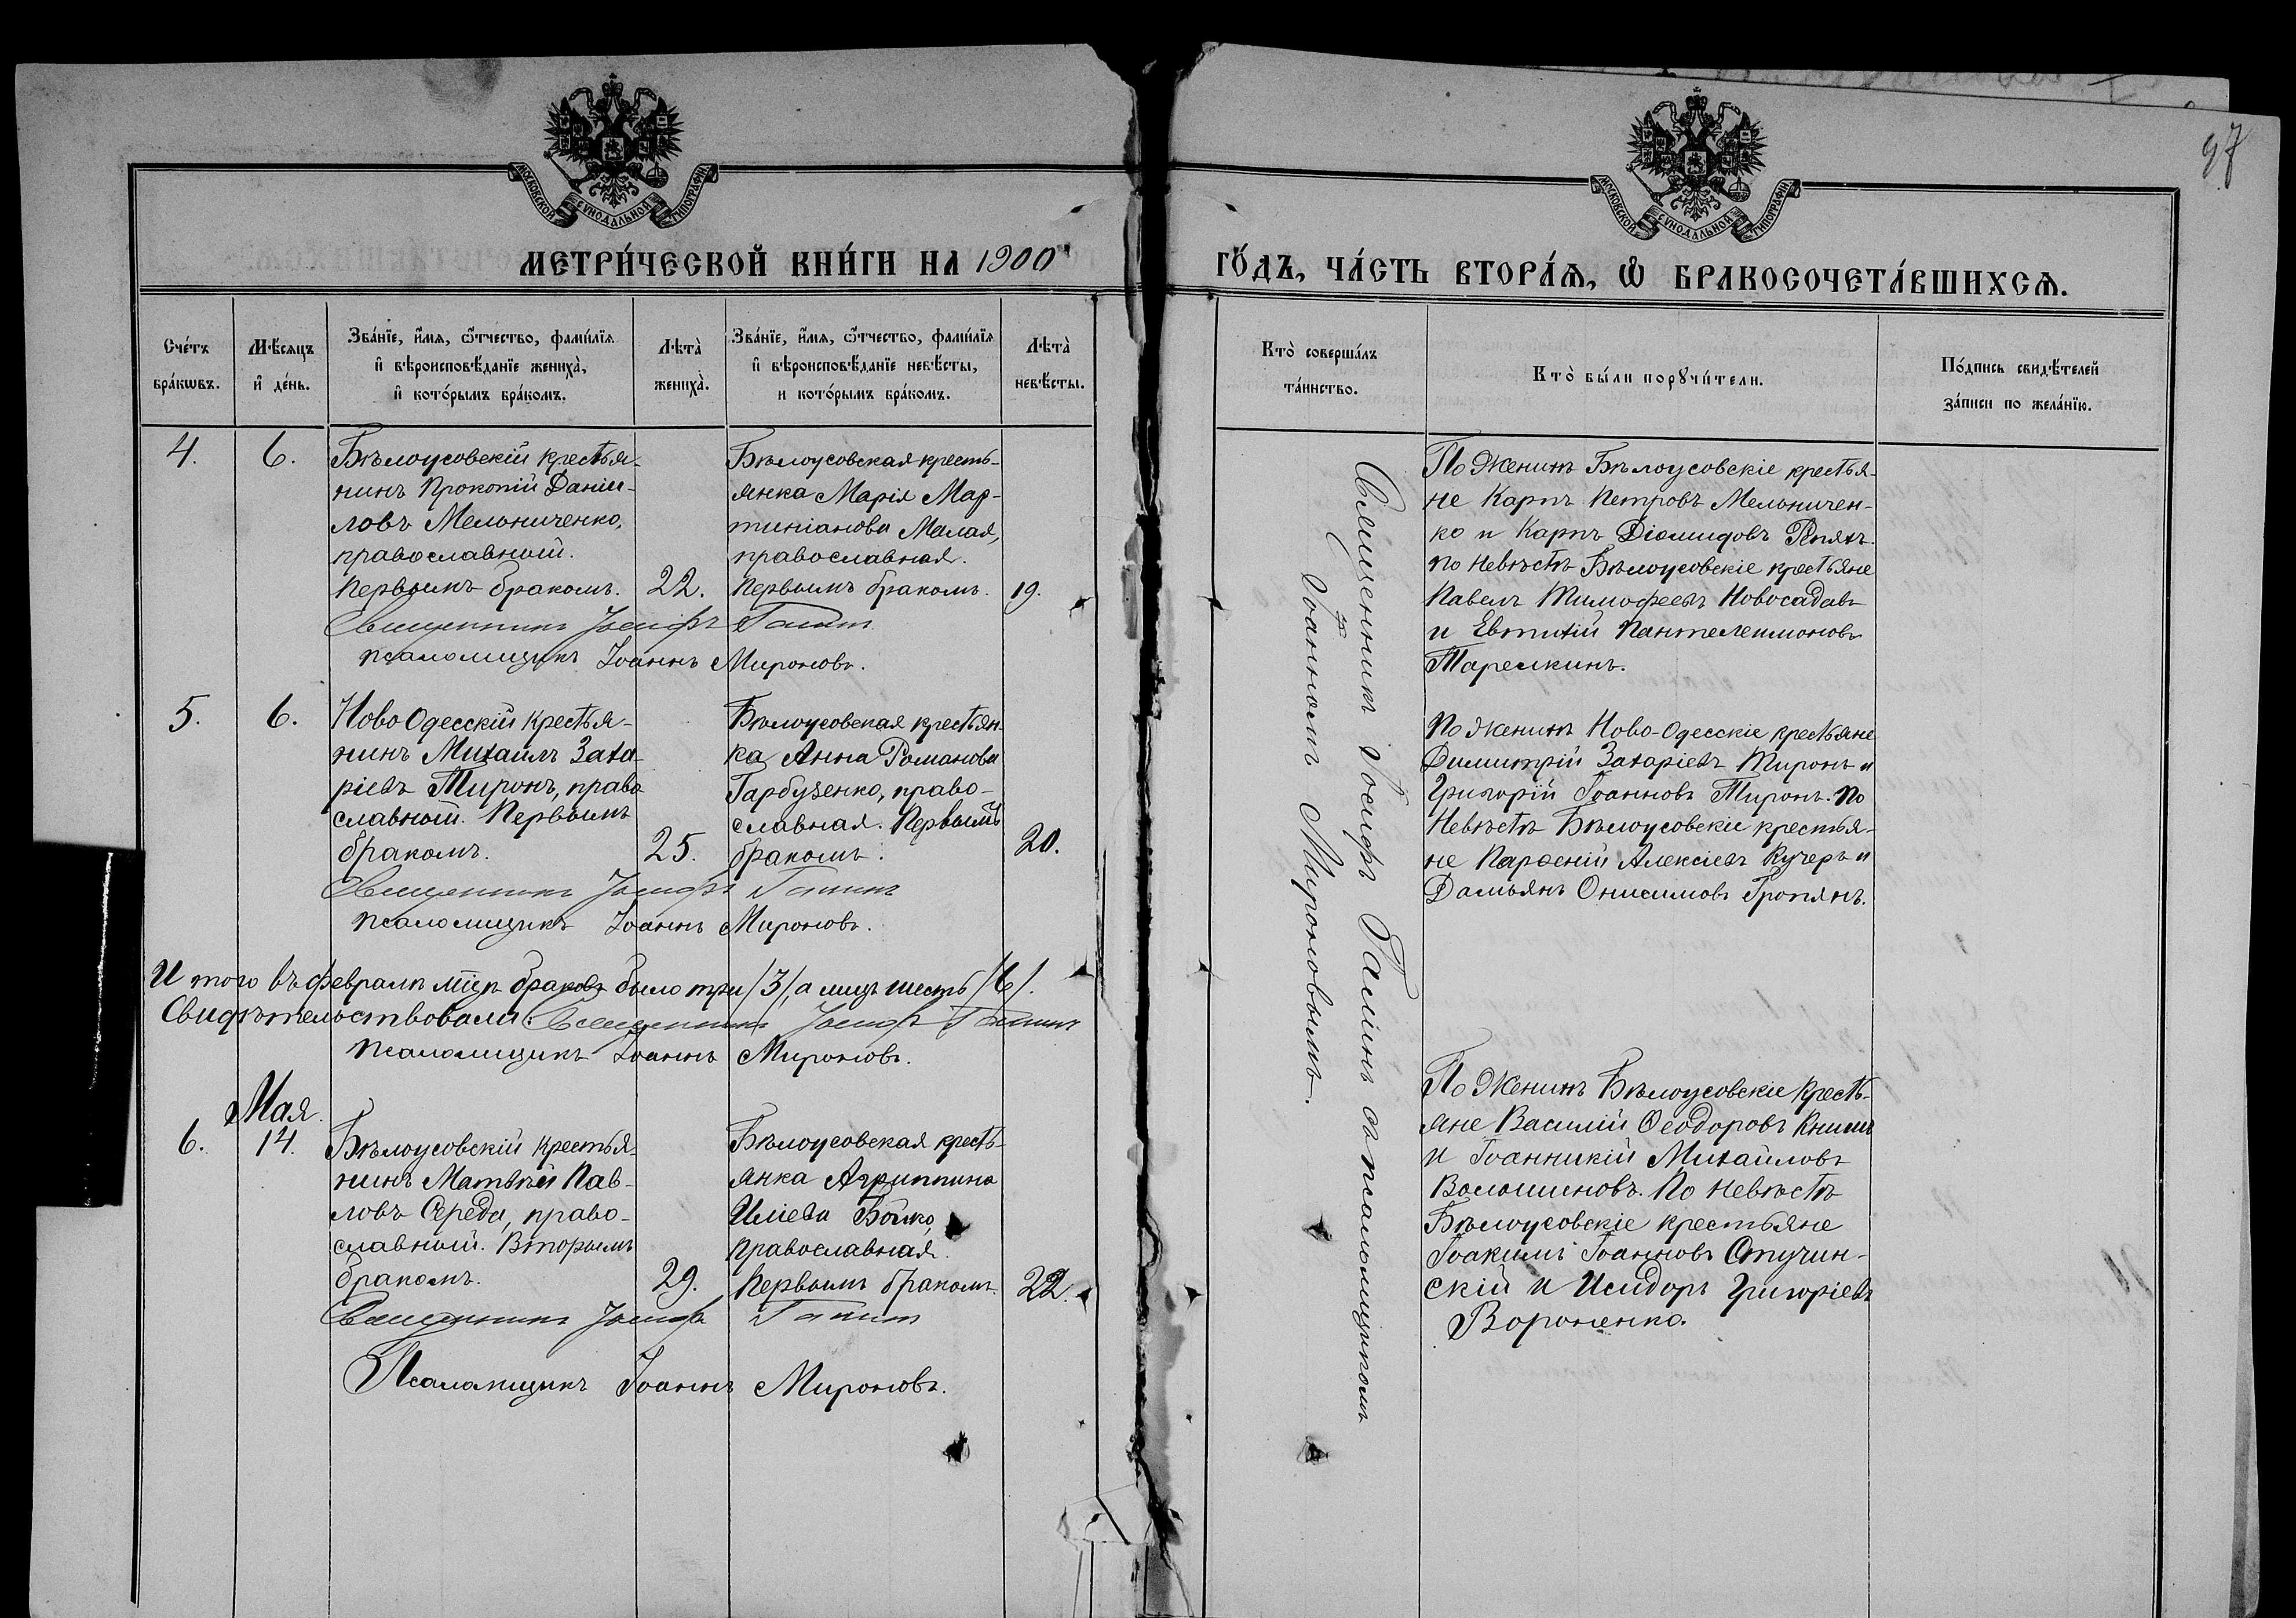 97
МОСКОВСКОЙ СѴНОДАЛЬНОЙ ТИПОГРАФІИ
МОСКОВСКОЙ СѴНОДАЛЬНОЙ ТИПОГРАФІИ
МЕТРИ́ЧЕСКОЙ КНИ́ГИ НА 1900
ГО́ДЪ, ЧА́СТЬ ВТОРА́Ѧ, Ѽ БРАКОСОЧЕТА́ВШИХСѦ.
Сче́тъ бра́кѡвъ.
Мѣ́сяцъ и҆ де́нь.
Зва́нїе, и҆́мя, ѻ҆́тчество, фами́лїя
и҆ вѣроисповѣ́данїе жениха̀,
и҆ кото́рымъ бра́комъ.
Лѣта̀ жениха̀.
Зва́нїе, и҆́мя, ѻ҆́тчество, фами́лїя
и҆ вѣроисповѣ́данїе невѣ́сты,
и кото́рымъ бра́комъ.
Лѣта̀ невѣ́сты.
Кто̀ соверша́лъ
та́инство.
Кто̀ бы́ли порꙋчи́тели.
По́дпись свидѣ́телей
за́писи по жела́нїю.
4.
6.
Бѣлоусовскій крестья-
нинъ Прокопій Даніи-
ловъ Мельниченко,
православный.
Первымъ бракомъ.
22.
Бѣлоусовская кресть-
янка Марія Мар-
тиніанова Малая,
православная.
Первымъ бракомъ.
19.
Священникъ Іосифъ
Псаломщикъ Іоаннъ Мироновъ.
По Женихѣ Бѣлоусовскіе крестья-
не Карпъ Петровъ Мельничен-
ко и Карпъ Діомидовъ Репяхъ.
По Невѣстѣ Бѣлоусовскіе крестьяне
Павелъ Тимофеевъ Новосадовъ
и Евтихій Пантелеимоновъ
Тарелкинъ.
5.
6.
Ново Одесскій крестья-
нинъ Михаилъ Заха-
ріевъ Тиронъ, право
славный. Первымъ
бракомъ.
25.
Бѣлоусовская крестьян-
ка Анна Романова
Гарбузенко, право-
славная. Первымъ
бракомъ.
20.
Священникъ Іосифъ
Псаломщикъ Іоаннъ Мироновъ.
По Женихѣ Ново-Одесскіе крестьяне
Димитрій Захаріевъ Тиронъ и
Григорій Іоанновъ Тиронъ. По
Невѣстѣ Бѣлоусовскіе крестья-
не Парѳеній Алексіевъ Кучеръ и
Дамьянъ Онисимовъ
Итого въ февралѣ мцѣ браковъ было три /3/, а лицъ шесть /6/.
Свидѣтельствовали: Священникъ Іосифъ
Псаломщикъ Іоаннъ Мироновъ.
Мая
6.
14.
Бѣлоусовскій крестья-
нинъ Матвѣй Пав-
ловъ Середа, право-
славный. Вторымъ
бракомъ.
29.
Бѣлоусовская кресть-
янка Агриппина
Иліева Бойко,
православная.
Первымъ бракомъ.
22.
Священникъ Іосифъ
Псаломщикъ Іоаннъ Мироновъ.
По Женихѣ Бѣлоусовскіе кресть-
яне Василій Ѳеодоровъ Книшъ
и Іоанникій Михайловъ
Волошиновъ. По Невѣстѣ
Бѣлоусовскіе крестьяне
Іоакимъ Іоанновъ Стучин-
скій и Исидоръ Григоріевъ
Вороненко.
Священникъ Іосифъ съ псаломщикомъ
Іоанномъ Мироновымъ.